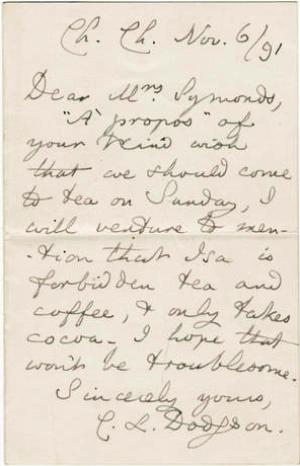 Ch. Ch. Nov. 6/91
Dear Mrs Symonds,
"A' propos" of
your kind wish
that we should come
to tea on Sunday, I
will venture to men-
-tion that Isa is
forbidden tea and
coffee, & only takes
cocoa. I hope that
won't be troublesome.
Sincerely yours,
C. L. Dodgson.